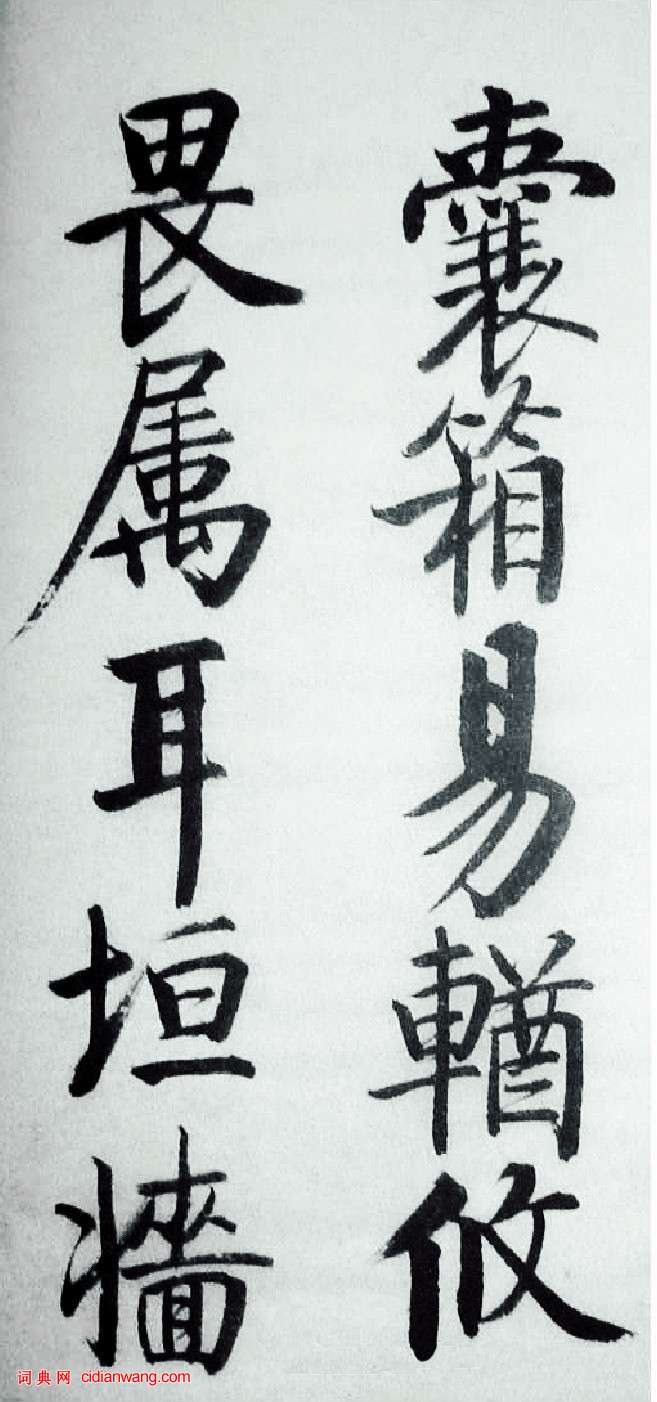 囊箱易輶攸
畏属耳垣牆
词典网 cidianwang.com